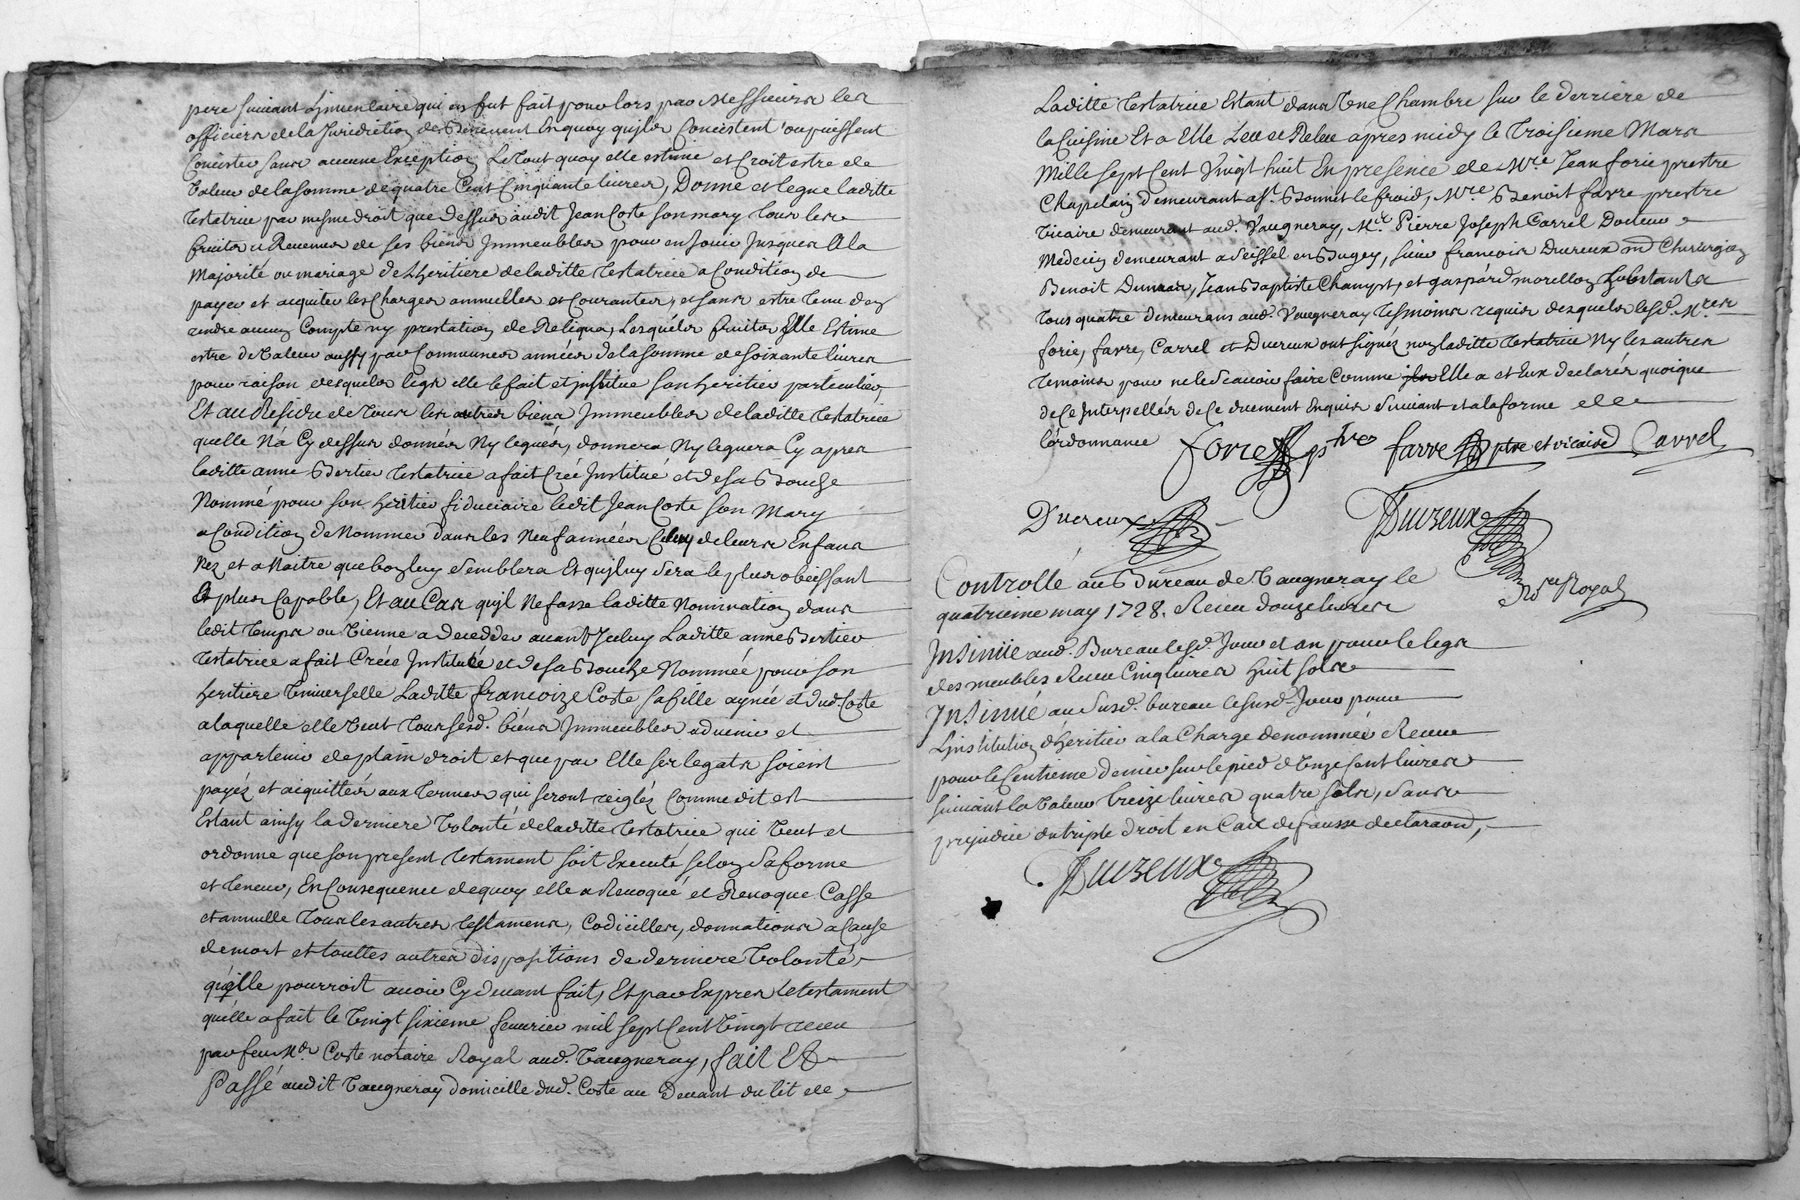 pere suivant Linventaire qui en fut fait pour lors par Messieurs les
officiers de la Juridiction de Enquoy quils Concistent ou puissent
Concister sans aucune Exception, Le tout quoy elle estime et Croit estre de
Valeur de la somme de quatre Cent Cinquante livres, Donne et legue laditte
testatrice par mesme droit que dessus audit Jean Coste son mary tous les
fruits et Revenus de ses biens Immeubles pour en Jouir Jusques A la
Majorité ou mariage de Lheritiere de laditte testatrice a Condition de
payer et acquiter les Charges annuelles et Courantes, et sans estre tenu den
rendre aucun Compte ny prestation de Reliqua, Lesquels fruits Elle Estime
estre de Valeur aussy par Communes années de la somme de soixante livres
pour raison desquels legs elle le fait et institue son heritier particulier,
Et au Residu de tous les autres biens Immeubles de laditte testatrice
quelle Na Cy dessus donnés Ny legués, donnera Ny leguera Cy apres
laditte anne Bertier testatrice a fait Créé Institué et de sa Bouche
Nommé pour son heritier fiduciaire ledit Jean Coste son Mary
a Condition de Nommer dans les Neuf années Celuy de leurs Enfans
Nez et a Naitre que bon luy semblera Et quil luy sera le plus obeissant
Et plus Capable, Et au Cas quil Ne fasse laditte Nomination dans
ledit temps ou Vienne a deceder avant Jcelluy Laditte anne Bertier
testatrice a fait Créée Instituée et de sa Bouche Nommée pour son
heritiere Universelle Laditte françoize Coste sa fille aynée et dud. Coste
a laquelle elle Veut tous sesd. biens Immeubles advenir et
appartenir de plain droit et que par Elle ses legats soient
payéz et acquittés aux termes qui seront reiglés Comme dit est
Estant ainsy la derniere Volonté de laditte testatrice qui Veut et
ordonne que son present testament soit Executé selon sa forme
et teneur, En Consequence de quoy elle a Revoqué et Revoque Casse
et annulle tous les autres testamens, Codicilles, donnations a Cause
de mort et touttes autres dispositions de derniere Volonté,
quelle pourroit avoir Cy devant fait, Et par Expres le testament
quelle a fait le Vingt sixieme fevrier mil sept Cent Vingt receu
par feu Me Coste notaire Royal aud. Vaugneray, fait Et
Passé audit Vaugneray domicille dud. Coste au Devant du lit de
Laditte testatrice Estant dans Une Chambre sur le derriere de
la Cuisine Et a Elle Leu et Releu apres midy le troisieme Mars
Mille sept Cent Vingt huit En presence de Mre Jean forie prestre
Chapelain demeurant a St Bonnet le froid, Mre Benoit favre prestre
Vicaire demeurant aud. Vaugneray, Mr Pierre Joseph Carrel Docteur
Medecin demeurant a Seissel en Bugey, sieur francois Ducreux md Chirurgien
Benoit Jean Baptiste Champt, et gaspard morellon habitants
tous quatre demeurans aud. Vaugneray tesmoins requis desquels lesd. Mres
forie, favre, Carrel et Ducreux ont signéz non laditte testatrice Ny les autres
temoins pour ne le scavoir faire Comme Elle a et Eux declarés quoique
de Ce Interpellés de Ce duement Enquis suivant et a la forme de
lordonnance forie ptre favre ptre et vicaire Carrel
Ducreux Ducreux
Nre Royal
Controllé au Bureau de Vaugneray le
quatrieme may 1728. Receu douze livres
Insinué aud. Bureau lesd. Jour et an pour le legs
des meubles Receu Cinq livres huit sols
Insinué au susd. bureau lesusd. Jour pour
Linstitution dheritier a la Charge de nommer Receu
pour le Centieme denier sur le pied d'onze cent livres
suivant la Valeur treize livres quatre sols, sans
prejudice du triple droit en Cas de fausse declaraon,
Ducreux